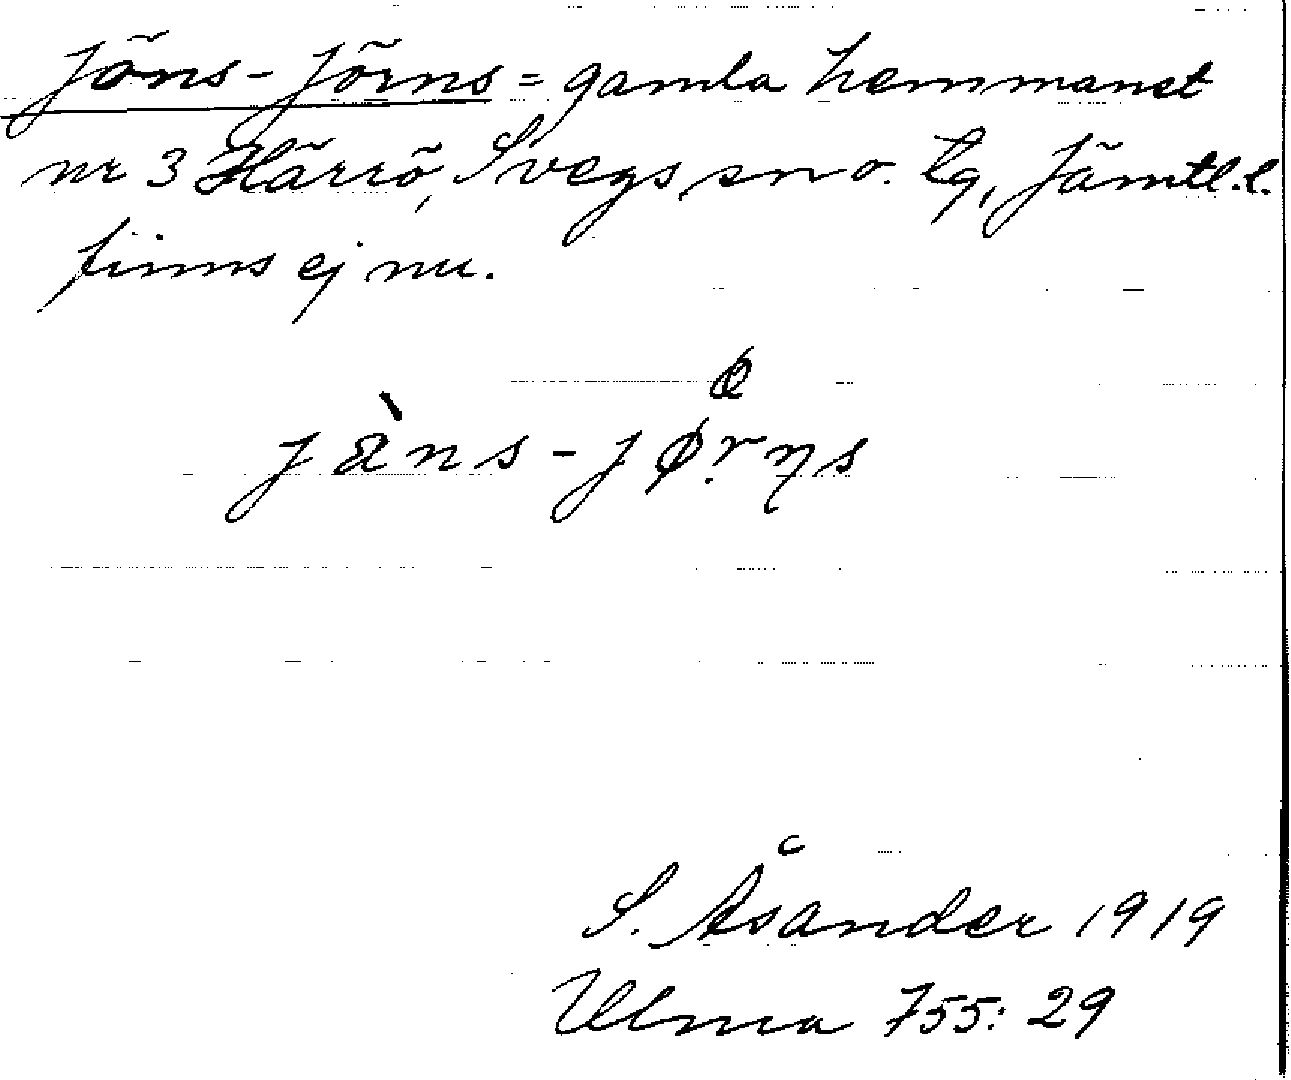 Jöns-Jörns = gamla hemmanet
nr 3 Härrö, Svegs sn o. tg, Jämtl.l.
finns ej nu.
S. Åsander 1919
Ulma 755:29